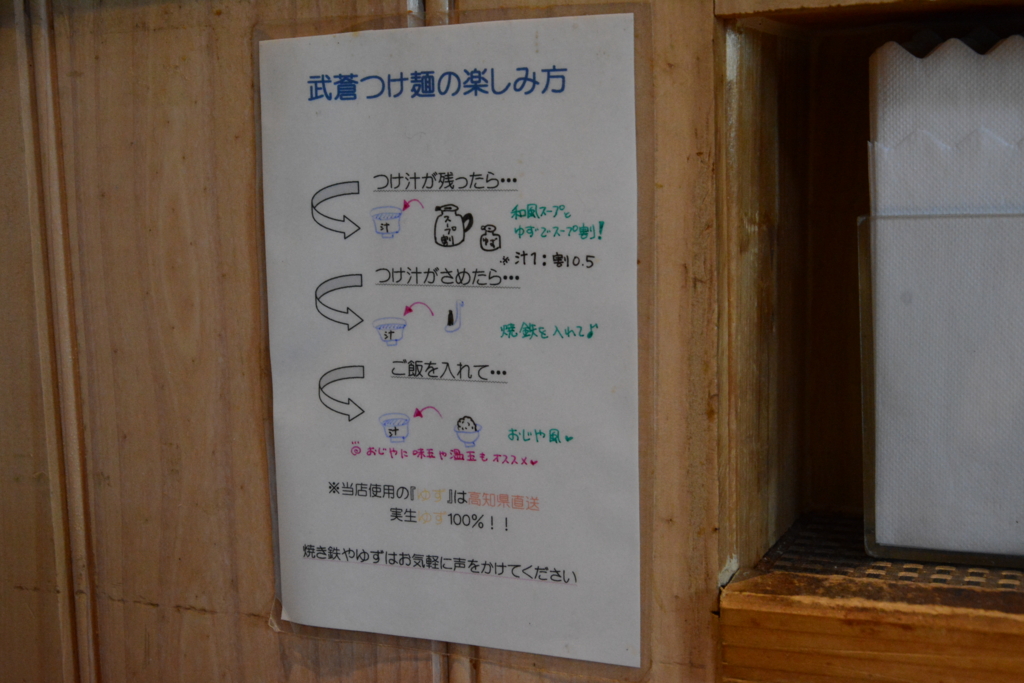 武蒼つけ麺の楽しみ方
つけ汁が残ったら…
汁
スープ割
ゆず
和風スープと
ゆずでスープ割!
※汁1:割0.5
つけ汁がさめたら…
汁
焼鉄を入れて♪
ご飯を入れて…
汁
おじや風♥
おじやに味玉や温玉もオススメ♥
※当店使用の『ゆず』は高知県直送
実生ゆず100%!!
焼き鉄やゆずはお気軽に声をかけてください